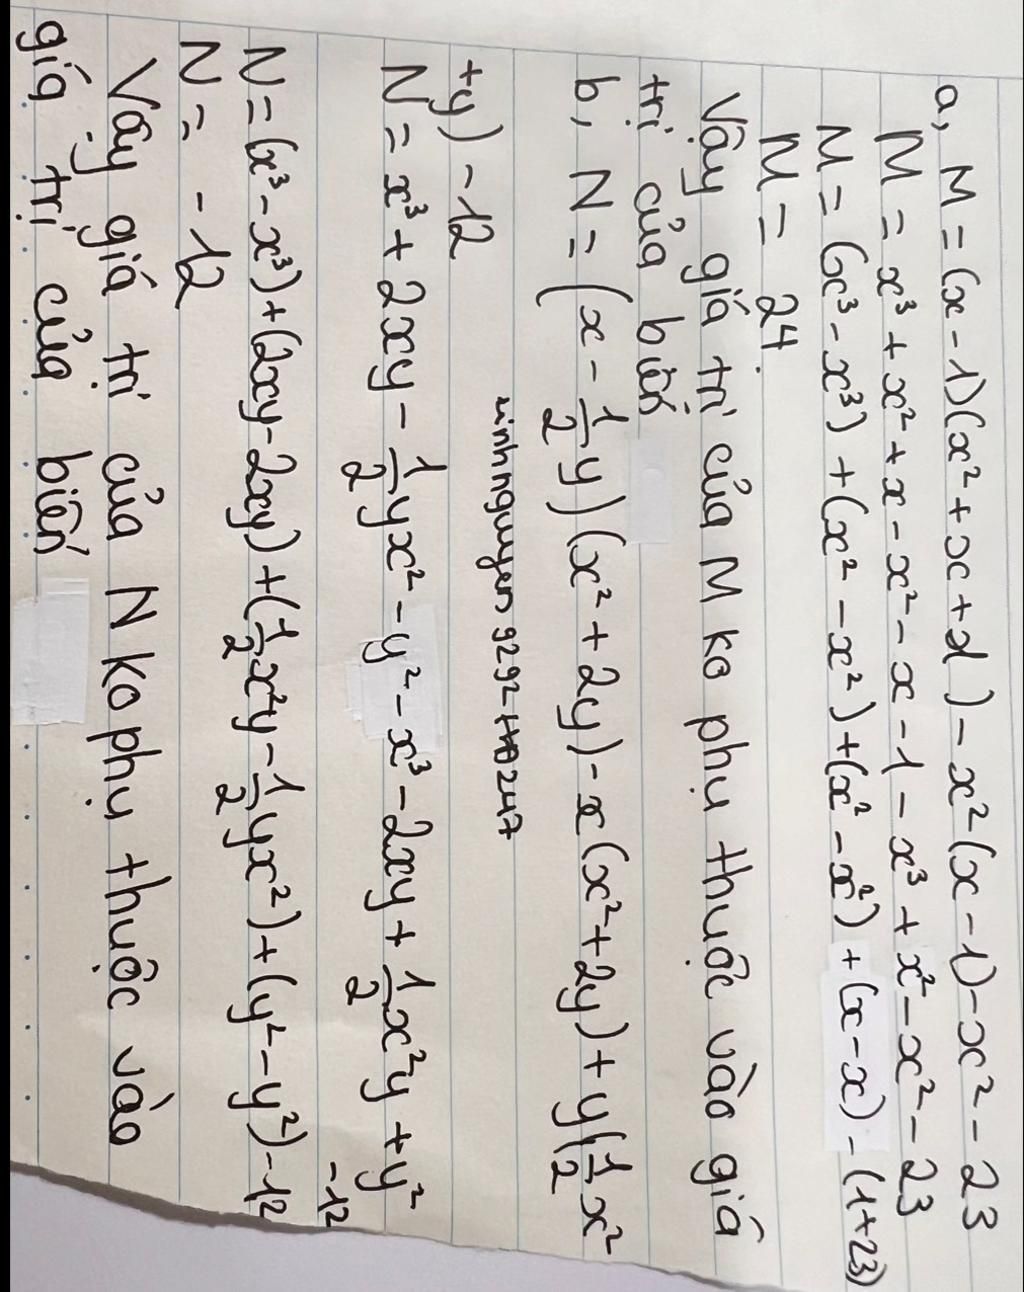 a, M = (x - 1)(x² + x + 1) - x²(x - 1) - x² - 23
M = x³ + x² + x - x² - x - 1 - x³ + x² - x² - 23
M = (x³ - x³) + (x² - x²) + (x² - x²) + (x - x) - (1+23)
M = 24.
Vậy giá trị của M ko phụ thuộc vào giá
trị của biến
b, N = (x - 1/2 y)(x² + 2y) - x(x² + 2y) + y(1/2 x²
+y) - 12
N = x³ + 2xy - 1/2 yx² - y² - x³ - 2xy + 1/2 x²y + y²
- 12
N = (x³ - x³) + (2xy - 2xy) + (1/2 x²y - 1/2 yx²) + (y² - y²) - 12
N = - 12
Vậy giá trị của N ko phụ thuộc vào
giá trị của biến